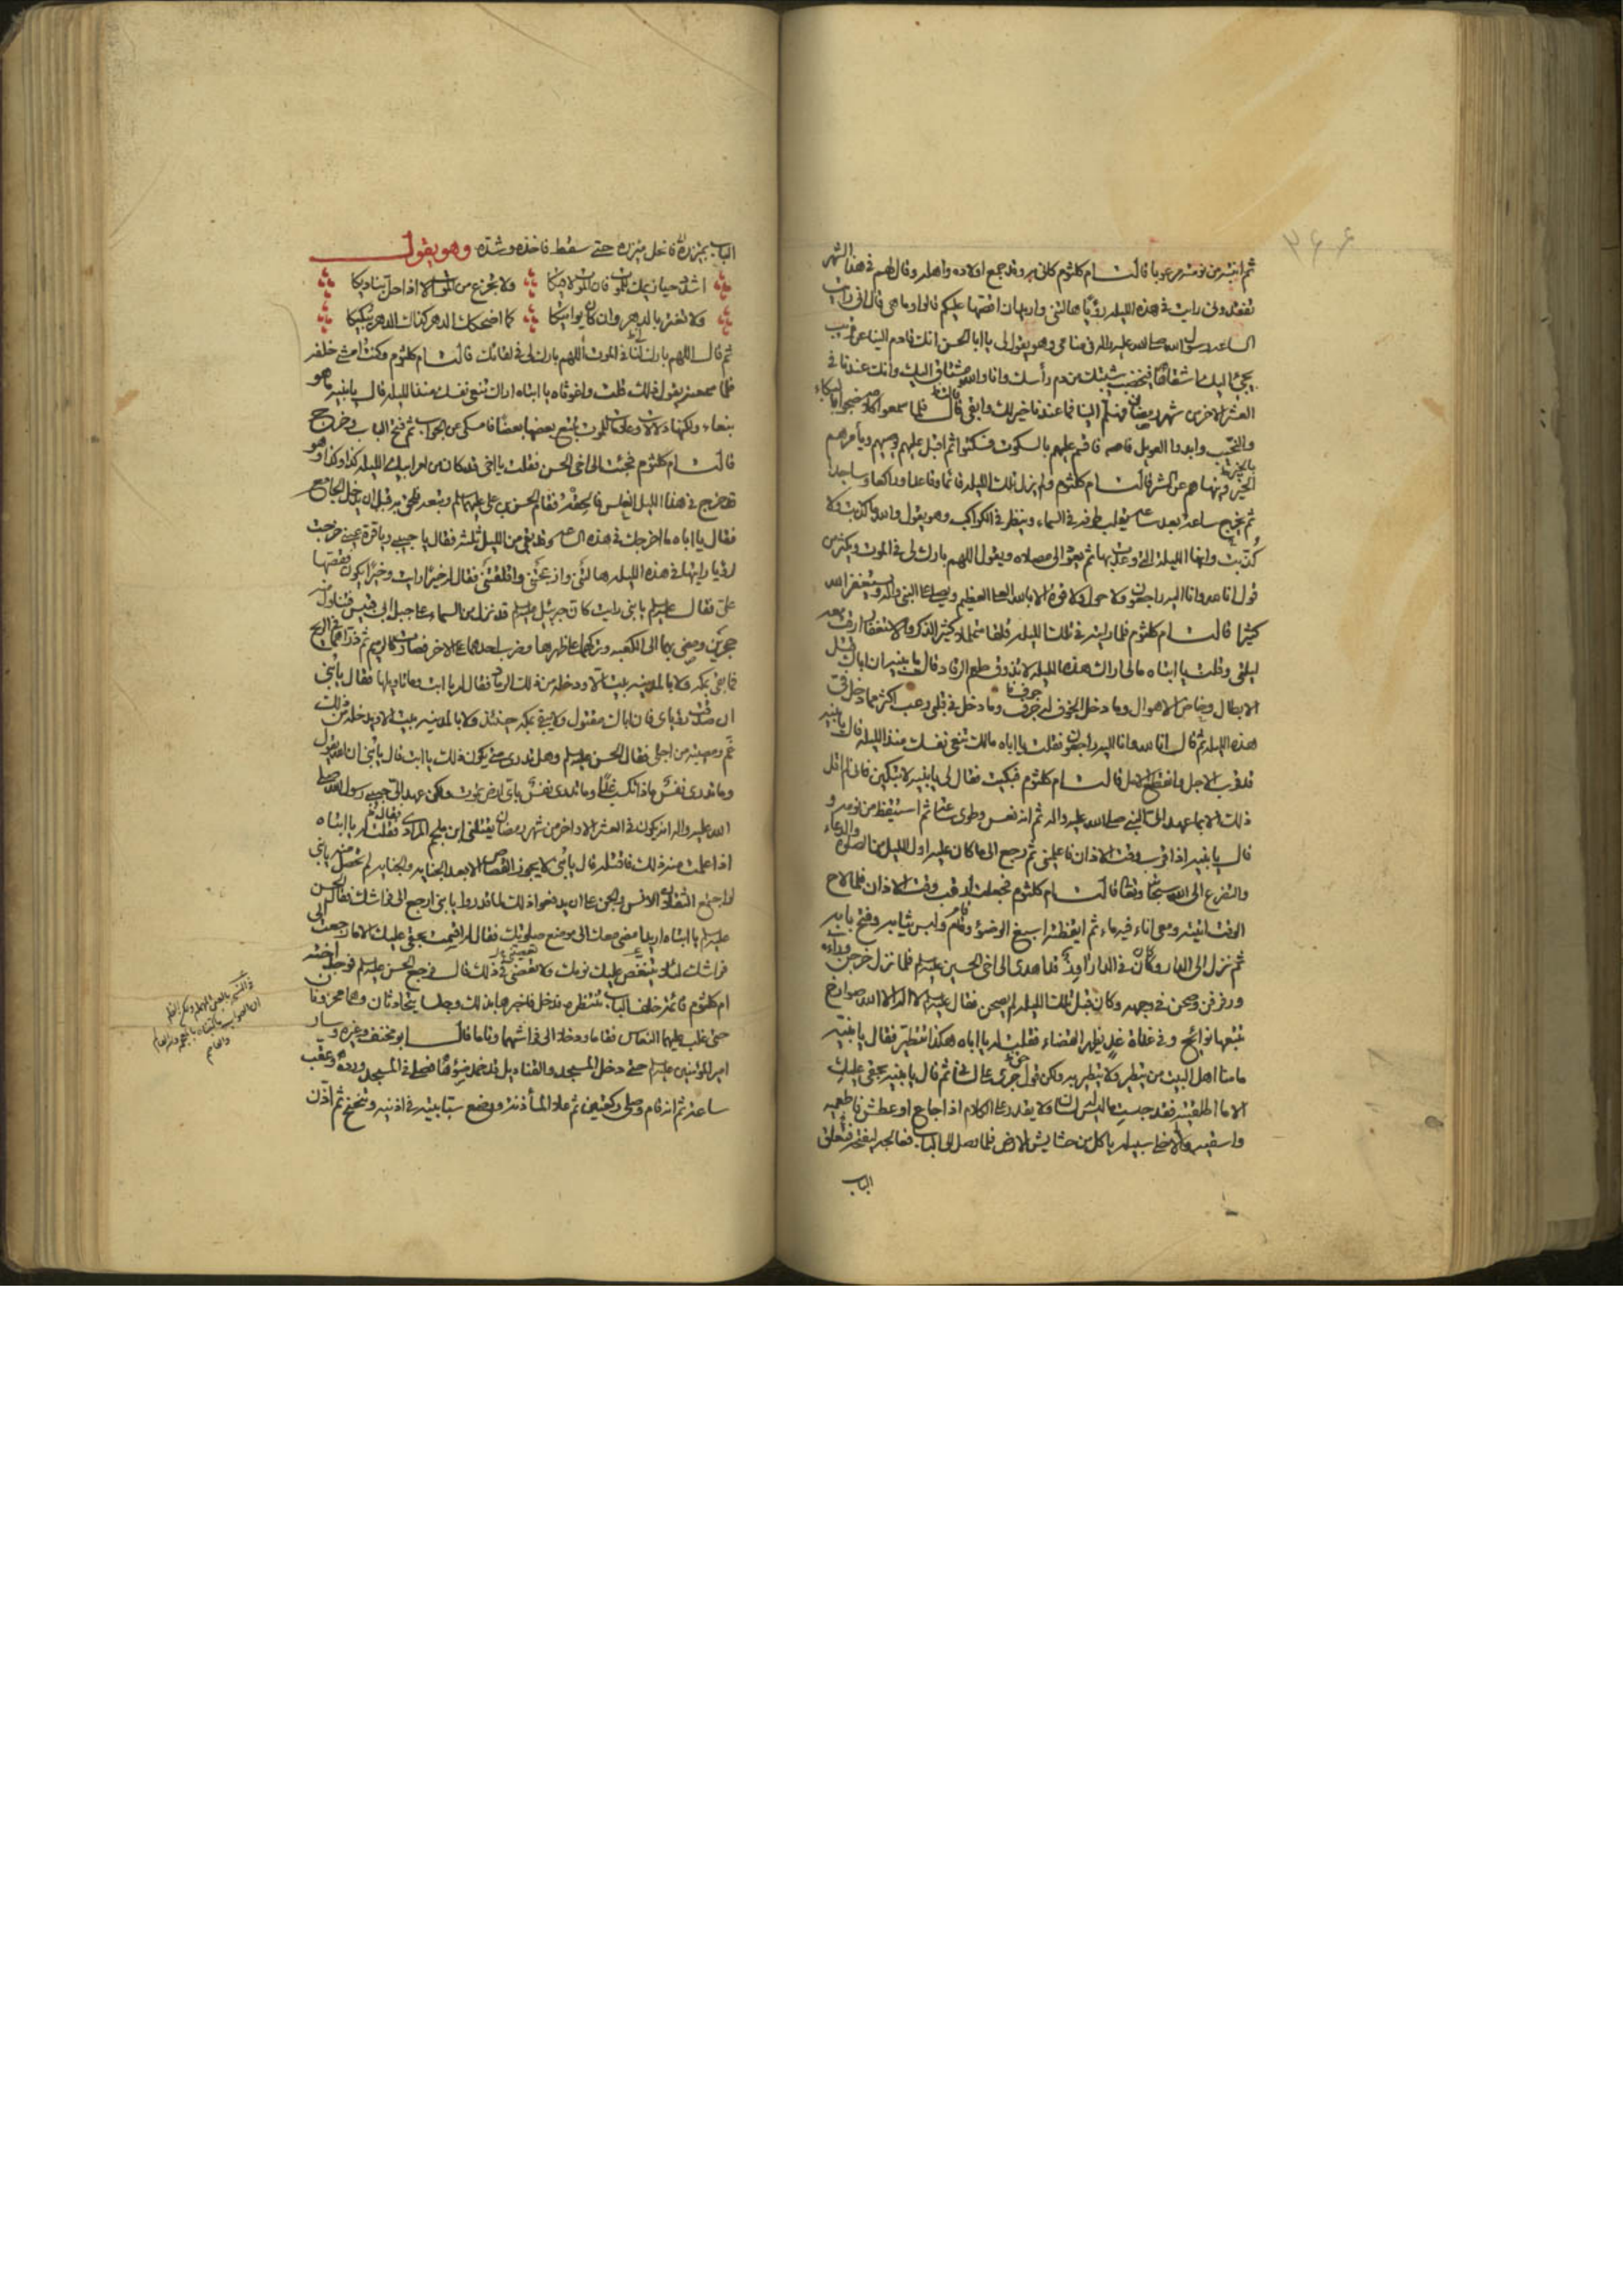 ثم انتبه من نومته مرعوبا قالت ام كلثوم كانى به وقد جمع اولاده واهله وقال لهم فى هذا الشهر
تفقدونى رايت فى هذه الليله رؤيا هالتنى واريد ان اقصها عليكم قالوا وما هى قال انى رايت
الساعه رسول الله صلى الله عليه واله فى منامى وهو يقول لى يا ابا الحسن انك قادم الينا عن قريب
يجئ اليك اشقاها فيخضب شيبتك من دم رأسك وانا والله مشتاق اليك وانك عندنا فى
العشر الاخر من شهر رمضان فهلم الينا فما عندنا خير لك وابقى قال فلما سمعوا كلامه ضجوا بالبكاء
والنحيب وابدوا العويل فاقسم عليهم بالسكوت فسكتوا ثم اقبل عليهم يوصيهم ويأمرهم
بالخير وينهاهم عن الشر قالت ام كلثوم ولم يزل تلك الليله قائما وقاعدا وراكعا وساجدا
ثم يخرج ساعة بعد ساعه يقلب طرفه فى السماء وينظر فى الكواكب وهو يقول والله ما كذبت ولا
كذبت وانها الليلة التى وعدت بها ثم يعود الى مصلاه ويقول اللهم بارك لى فى الموت ويكثر من
قول انا لله وانا اليه راجعون ولا حول ولا قوة الا بالله العلى العظيم ويصلى على النبى واله ويستغفر الله
كثيرا قالت ام كلثوم فلما رايته فى تلك الليله قلقا متململا كثير الذكر والاستغفار ارقت معه
ليلتى وقلت يا ابتاه مالى اراك هذه الليله لا تذوق طعم الرقاد قال يا بنيه ان اباك قتل
الابطال وخاض الاهوال وما دخل الخوف له جوف وما دخل فى قلبى رعب اكثر مما دخل فى
هذه الليله ثم قال انا لله وانا اليه راجعون فقلت يا اباه مالك تنعى نفسك منذ الليله قال يا بنيه
قد قرب الاجل وانقطع الامل قالت ام كلثوم فبكيت فقال لى يا بنيه لا تبكين فانى لم اقل
ذلك الا بما عهد الى النبى صلى الله عليه واله ثم انه نعس وطوى ساعة ثم استيقظ من نومه و
قال يا بنيه اذا قرب وقت الاذان فاعلمينى ثم رجع الى ما كان عليه اول الليل من الصلوة والدعاء
والتضرع الى الله سبحانه وتعالى قالت ام كلثوم فجعلت ارقب وقت الاذان فلما لاح
الوقت اتيته ومعى اناء فيه ماء ثم ايقظته اسبغ الوضوء وقام ولبس ثيابه وفتح بابه
ثم نزل الى الدار وكان فى الدار اوز قد اهدى الى اخى الحسين عليه السلام فلما نزل خرجن وراءه
ورفرفن وصحن فى وجهه وكان قبل تلك الليله لم يصحن فقال عليه السلام لا اله الا الله صوارخ
تتبعها نوائح وفى غداة غد يظهر القضاء فقلت له يا اباه هكذا تتطير فقال يا بنيه
ما منا اهل البيت من يتطير ولا يتطير به ولكن قول جرى على لسانى ثم قال يا بنيه بحقى عليك
الا ما اطلقتيه فقد حبست ما ليس له لسان ولا يقدر على الكلام اذا جاع او عطش فاطعميه
واسقيه والا خلى سبيله ياكل من حشايش الارض فلما وصل الى الباب فعالجه ليفتحه فتعلق
الباب
الباب بمئزره فانحل مئزره حتى سقط فاخذه وشده وهو يقول
اشدد حيازيمك للموت فان الموت لاقيكا ولا تجزع من الموت اذا حل بناديكا
ولا تغتر بالدهر وان كان يواتيكا كما اضحكك الدهر كذاك الدهر يبكيكا
ثم قال اللهم بارك لنا فى الموت اللهم بارك لى فى لقائك قالت ام كلثوم وكنت امشى خلفه
فلما سمعته يقول ذلك قلت واغوثاه يا ابتاه اراك تنعى نفسك منذ الليله قال يا بنيه ما هو
بنعاء ولكنها دلالات وعلامات للموت تتبع بعضها بعضا فامسكى عن الجواب ثم فتح الباب وخرج
قالت ام كلثوم فجئت الى اخى الحسن فقلت يا اخى قد كان من امر ابيك الليله كذا وكذا وهو
قد خرج فى هذا الليل الغلس فالحقه فقام الحسن بن على عليهما السلام وتبعه فلحق به قبل ان يدخل الجامع
فقال يا اباه ما اخرجك فى هذه الساعه وقد بقى من الليل ثلثه فقال يا حبيبى ويا قرة عينى خرجت
لرؤيا رايتها فى هذه الليله هالتنى وازعجتنى واقلقتنى فقال له خيرا رايت وخيرا يكون فقصها
على فقال عليه السلام يا بنى رايت كان جبرئيل عليه السلام قد نزل من السماء على جبل ابى قبيس فتناول منه
حجرين ومضى بهما الى الكعبه وتركهما على ظهرها وضرب احدهما على الاخر فصارت كالرميم ثم ذراهما فى الريح
فما بقى بمكه ولا بالمدينه بيت الا ودخله من ذلك الرماد فقال له يا ابت وما تاويلها فقال يا بنى
ان صدقت رؤياى فان اباك مقتول ولا يبقى بمكه حينئذ ولا بالمدينه بيت الا ويدخله من ذلك
غم ومصيبه من اجلى فقال الحسن عليه السلام وهل تدرى متى يكون ذلك يا ابت قال يا بنى ان الله يقول
وما تدرى نفس ماذا تكسب غدا وما تدرى نفس باى ارض تموت ولكن عهد الى حبيبى رسول الله صلى
الله عليه واله انه يكون فى العشر الاواخر من شهر رمضان يقتلنى ابن ملجم المرادى فقلت له يا ابتاه
اذا علمت منه ذلك فاقتله قال يا بنى لا يجوز القصاص الا بعد الجنايه والجنايه لم تحصل منه يا بنى
لو اجتمع الثقلان الانس والجن على ان يدفعوا ذلك لما قدروا يا بنى ارجع الى فراشك فقال الحسن
عليه السلام يا ابتاه اريد امضى معك الى موضع صلوتك فقال له اقسمت بحقى عليك الا ما رجعت الى
فراشك لئلا يتنغص عليك نومك ولا تعصنى فى ذلك قال فرجع الحسن عليه السلام فوجد اخته
ام كلثوم قائمة خلف الباب تنتظره فدخل فاخبرها بذلك وجلسا يتحادثان وهما محزونان
حتى غلب عليهما النعاس فقاما ودخلا الى فراشهما وناما قال ابو مخنف وغيره وسار
امير المؤمنين عليه السلام حتى دخل المسجد والقناديل قد خمد ضوؤها فصلى فى المسجد ورده وعقب
ساعة ثم انه قام وصلى ركعتين ثم علا المأذنه ووضع سبابتيه فى اذنيه وتنحنح ثم اذن